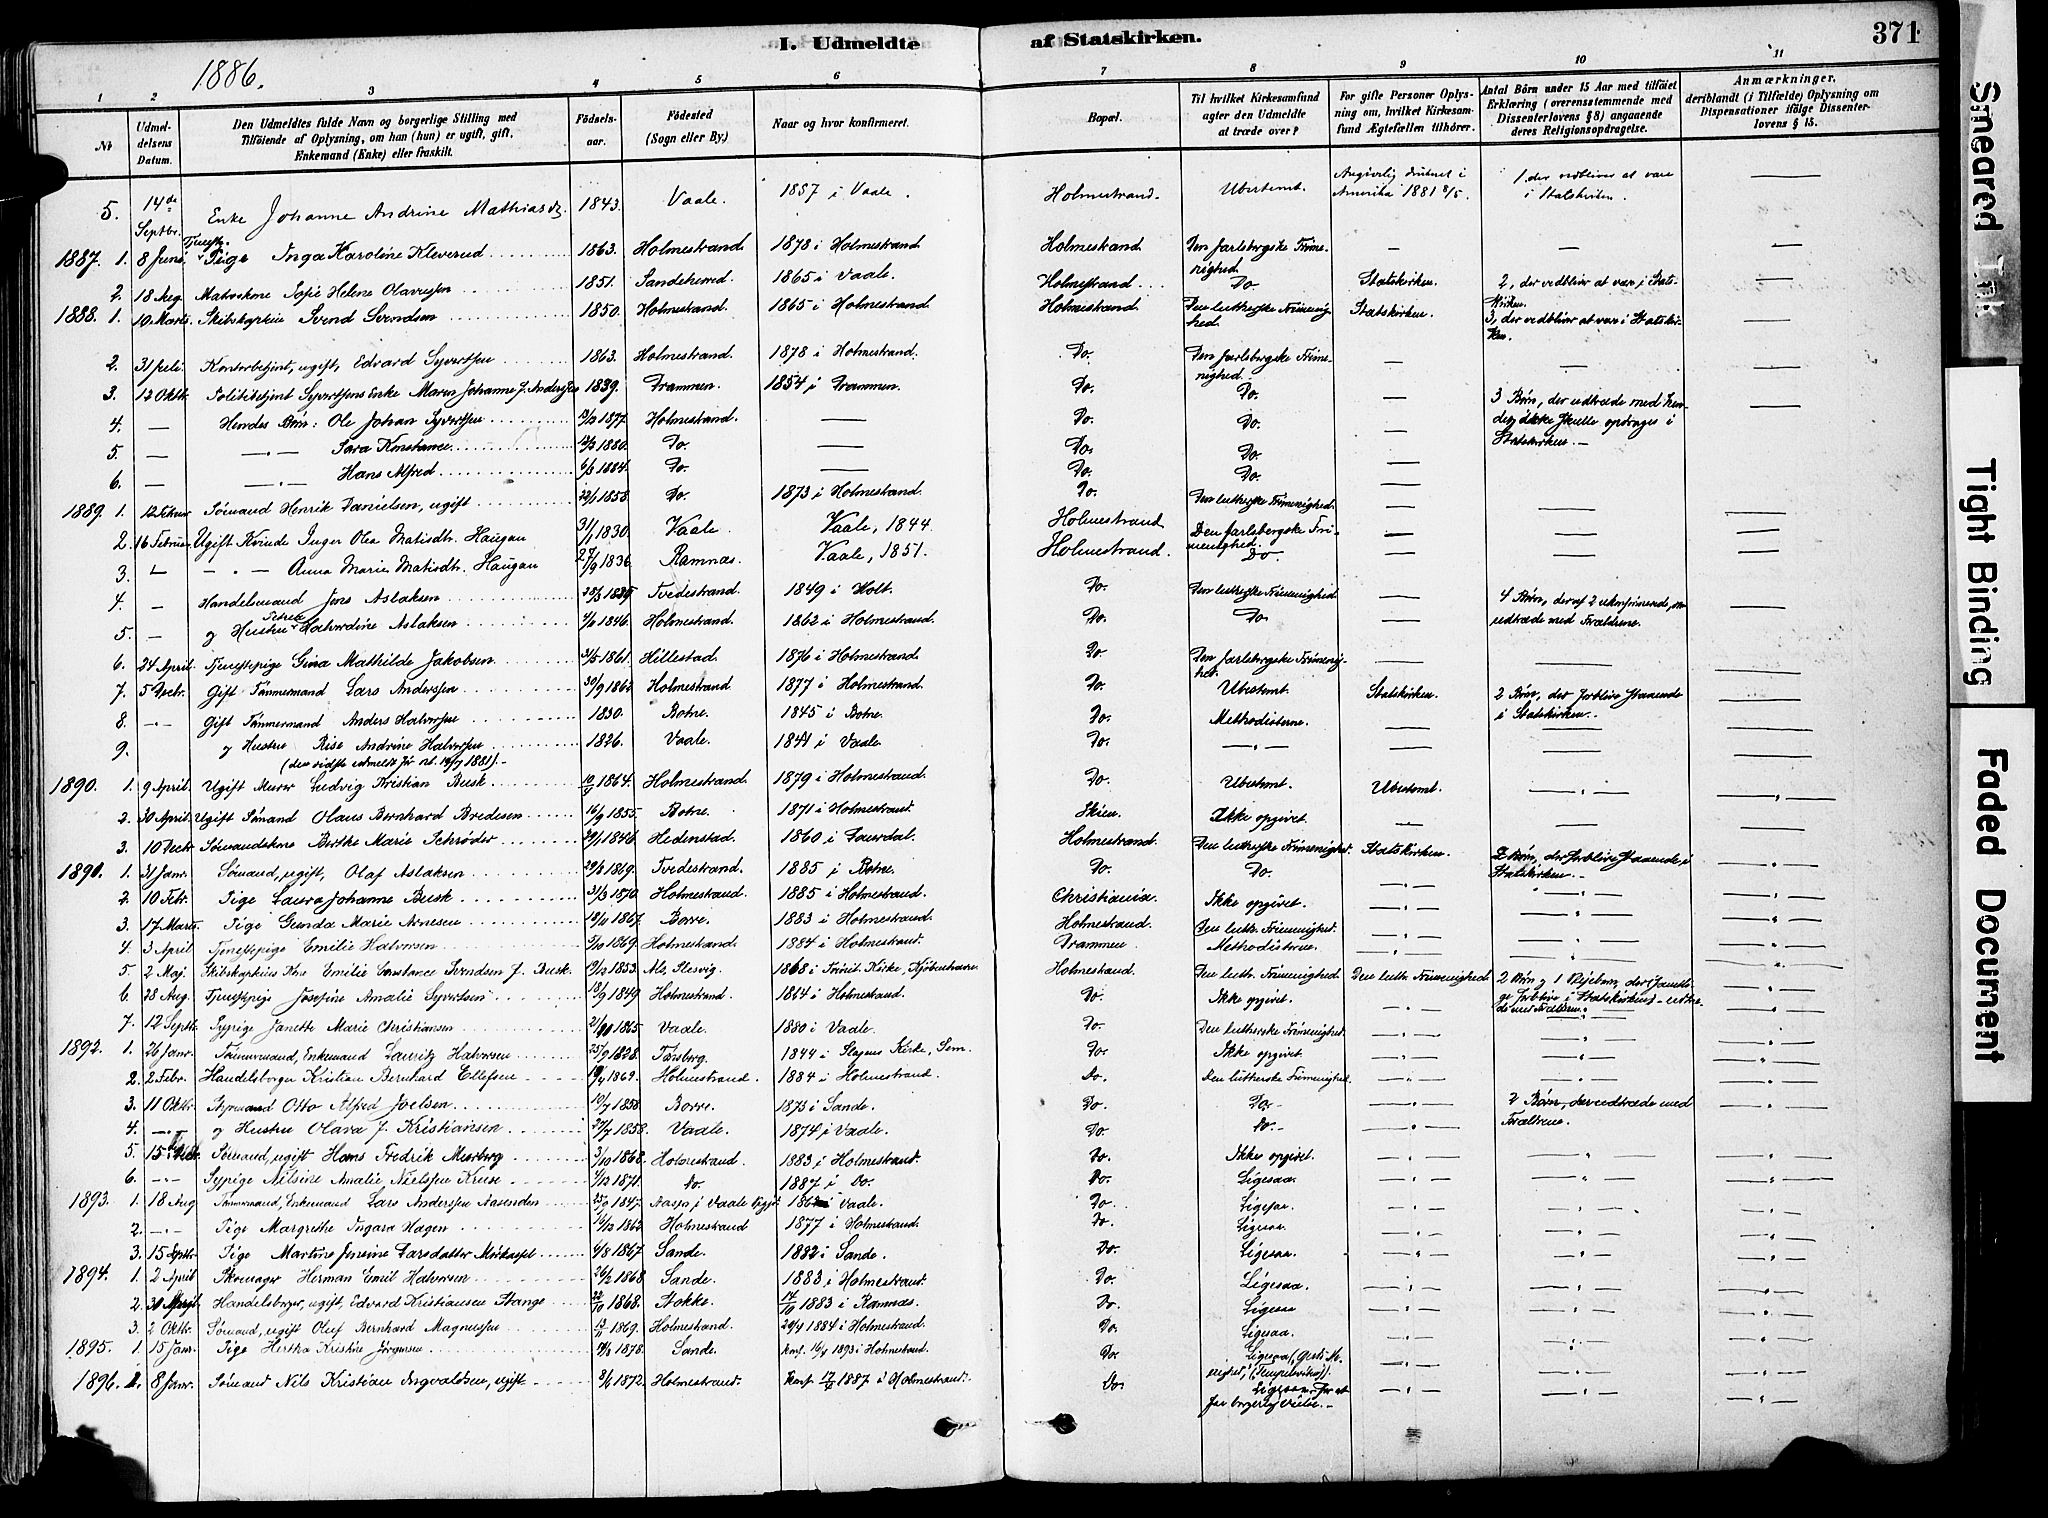 I. Udmeldte af Statskirken.
371
1886.
1 2 3 4 5 6 7 8 9 10 11
No
Udmel-
delsens
Datum.
Den Udmeldtes fulde Navn og borgerlige Stilling med
Tilföiende af Oplysning, om han (hun) er ugift, gift,
Enkemand (Enke) eller fraskilt.
Födsels-
aar.
Födested
(Sogn eller By.)
Naar og hvor konfirmeret.
Bopæl.
Til hvilket Kirkesamfund
agter den Udmeldte
at træde over?
For gifte Personer Oplys-
ning om, hvilket Kirkesam-
fund Ægtefællen tilhörer.
Antal Börn under 15 Aar med tilföiet
Erklæring (overensstemmende med
Dissenterlovens § 8) angaaende
deres Religionsopdragelse.
Anmærkninger,
deriblandt (i Tilfælde) Oplysning om
Dispensationer ifölge Dissenter-
lovens § 15.
5. 14de Septbr. Enke Johanne Andrine Mathiasdr. 1843. Vaale. 1857 i Vaale. Holmestrand. Ubestemt. Angivelig druknet i Amerika 1881 8/5. 1, der vedbliver at være i Statskirken. —
1887. 1. 8 Juni Tjenestp. Pige Inga Karoline Kleverud 1863. Holmestrand. 1878 i Holmestrand Holmestrand Den Jarlsbergske Frimenighed — — —
2. 18 Aug. Madame Sofie Helene Olavessen 1851. Sandeherred 1865 i Vaale. Holmestrand Do. Statskirken. 2, der vedbliver at være i Statskirken. —
1888. 1. 10 Marts. Skibskaptein Svend Svendsen 1850. Holmestrand. 1865 i Holmestrand Holmestrand Den lutherske Frimenighed. Statskirken. 3, der vedbliver at være i Statskirken. —
2. 31 Juli. Kontorbetjent, ugift, Edvard Syvertsen 1863. Holmestrand. 1878 i Holmestrand. Do. Den Jarlsbergske Frimenighed. — — —
3. 12 Oktb. Politibetjent Syvertsens Enke Maren Johanne f. Andersen 1839. Drammen. 1854 i Drammen. Do. Do. — 3 Børn, der udtræde med hende, ikke skulle opdrages i Statskirken. —
4. — Hendes Børn: Ole Johan Syvertsen 1877. Holmestrand. — Do. Do. —
5. — — Sara Konstance 1880. Do. — Do. Do. —
6. — — Hans Alfred 6/6 1884. Do. — Do. Do. —
1889. 1. 12 Februar Sømand Henrik Danielsen, ugift 22/1 1858. Do. 1873 i Holmestrand Do. Den lutherske Frimenighed. — — —
2. 16 Februar. Ugift Kvinde Inger Olea Matisdtr. Haugan 31/1 1830. Vaale. Vaale, 1844. Holmestrand Den Jarlsbergske Frimenighed. — — —
3. — — Anna Marie Matisdtr. Haugan 27/9 1836. Ramnæs. Vaale, 1851. Holmestrand. Do. — — —
4. — Handelsmand Jens Aslaksen Tvedestrand 1849 i Holt. Do. Den lutherske Frimenighed. — 4 Børn, deraf 2 ukonfirmerede, udtræde med Forældrene. —
5. — og Hustru Petrea Halvardine Aslaksen 1846. Holmestrand. 1862 i Holmestrand. Do. Do. — —
6. 24 April. Tjenestepige Gina Mathilde Jakobsen 31/5 1861. Hillestad. 1876 i Holmestrand. Do Den Jarlsbergske Frimenighed. — — —
7. 5 Decbr. Gift Tömmermand Lars Anderssen 30/9 1862 Holmestrand 1877 i Holmestrand. Do. Ubestemt. Statskirken. 2 Børn, der forblive staaende i Statskirken. —
8. — Gift Tömmermand Anders Halvorsen 1830. Botne. 1845 i Botne. Do. Methodisterne. — — —
9. og Hustru Rise Andrine Halvorsen 1826. Vaale. 1841 i Vaale. Do. — — — —
(den sidste udmeldt før 1881).
1890. 1. 9 April. Ugift Murer Ludvig Kristian Busk 1864. Holmestrand. 1879 i Holmestrand. Do. Ubestemt. Ubestemt. — —
2. 30 April. Ugift Sömand Olaus Bernhard Bredesen 16/9 1855. Botne. 1871 i Holmestrand. Skien. Ikke opgivet. — — —
3. 10 Decbr Sömandskone Berthe Marie Schrøder 29/1 1846. Hedenstad. 1860 i Laurdal. Holmestrand. Den lutherske Frimenighed. Statskirken. 2 Børn, der forblive staaende i Statskirken. —
1891. 1. 31 Janr. Sömand, ugift, Olaf Aslaksen 1869. Tvedestrand. 1885 i Botne. Do. Do. — — —
2. 10 Febr. Pige Laura Johanne Busk 31/3 1870. Holmestrand. 1885 i Holmestrand. Christiania. Ikke opgivet. — — —
3. 17 Marts. Pige Gunda Marie Arnesen 1867. Borre. 1883 i Holmestrand. Holmestrand. Den luth. Frimenighed. — — —
4. 3 April Tjenestepige Emilie Halvorsen 5/10 1869. Holmestrand. 1884 i Holmestrand. Drammen. Methodisterne. — — —
5. 2 Maj. Skibskapteins Kone Emilie Constance Svendsen f. Busk. 1853. Als, Slesvig. 1868 i Trinit. Kirke, Kjöbenhavn. Holmestrand. Den luth. Frimenighed. Den luth. Frimenighed. 2 Børn og 1 Plejebarn
6. 28 Aug. Tjenestepige Josefine Amalie Syvertsen 18/9 1849 Holmestrand. 1864 i Holmestrand. Do. Ikke opgivet. — — —
7. 12 Septb. Sypige Janette Marie Christiansen 1865. Vaale. 1880 i Vaale. Do. Den lutherske Frimenighed. — — —
1892. 1. 26 Janr. Tömmermand, Enkemand Lauritz Halvorsen 25/9 1828. Tönsberg. 1844 i Slagens Kirke, Sem. Do. Ikke opgivet. — — —
2. 2 Febr. Handelsborger Kristian Bernhard Ellefsen 1869. Holmestrand. 1884 i Holmestrand. Do. Den lutherske Frimenighed. — — —
3. 11 Oktbr Styrmand Otto Alfred Joelsen 10/7 1858. Borre. 1873 i Sande. Do. Do. — 2 Børn, der udtræde med Forældrene. —
4. — og Hustru Olava f. Kristiansen 27/7 1858. Vaale. 1874 i Vaale. Do. Do. — —
5. 15 Sömand, ugift Hans Fredrik Murberg 3/10 1868. Holmestrand. 1883 i Holmestrand. Do. Ikke opgivet. — — —
6. — Sypige Nilsine Amalie Nielsen Kruse 1/12 1871. Do. 1887 i Do. Do. Ligesaa. — — —
1893. 1. 18 Aug Tömmermand, Enkemand Lars Anderssen Aasenden 25/9 1847. i Vaale i Vaale. Do. Ligesaa. — — —
2. — Pige Margrethe Ingara Hagen 1862 Holmestrand 1877 i Holmestrand. Do. Ligesaa. — — —
3. 15 Septbr. Pige Martine Josine Larsdatter 4/8 1867. Sande. 1882 i Sande. Do. Ligesaa. — — —
1894. 1. 2 April Skomager Herman Emil Halvorsen 26/2 1868. Sande. 1883 i Holmestrand. Do. Ligesaa. — — —
2. 30 Handelsborger, ugift, Edvard Kristiansen Stange 22/10 1868. Stokke. 14/10 1883 i Ramnæs. Do. Ligesaa. — — —
3. 2 Oktbr. Sömand, ugift Oluf Bernhard Magnussen 1869. Holmestrand. 1884 i Holmestrand. Do. Ligesaa. — — —
1895. 1. 15 Janr. Pige Hertha Kristine Jörgensen 1878. Sande. konf. 1893 i Holmestrand. Do. Ligesaa — — —
1896. 1. 8 Janr. Sömand Nils Kristian Ingvaldsen, ugift 1872. Holmestrand. konf. 1887 i Holmestrand. Do. Ligesaa, for at faa borgerlig vielse. — — — —
Smeared Ink
Tight Binding
Faded Document